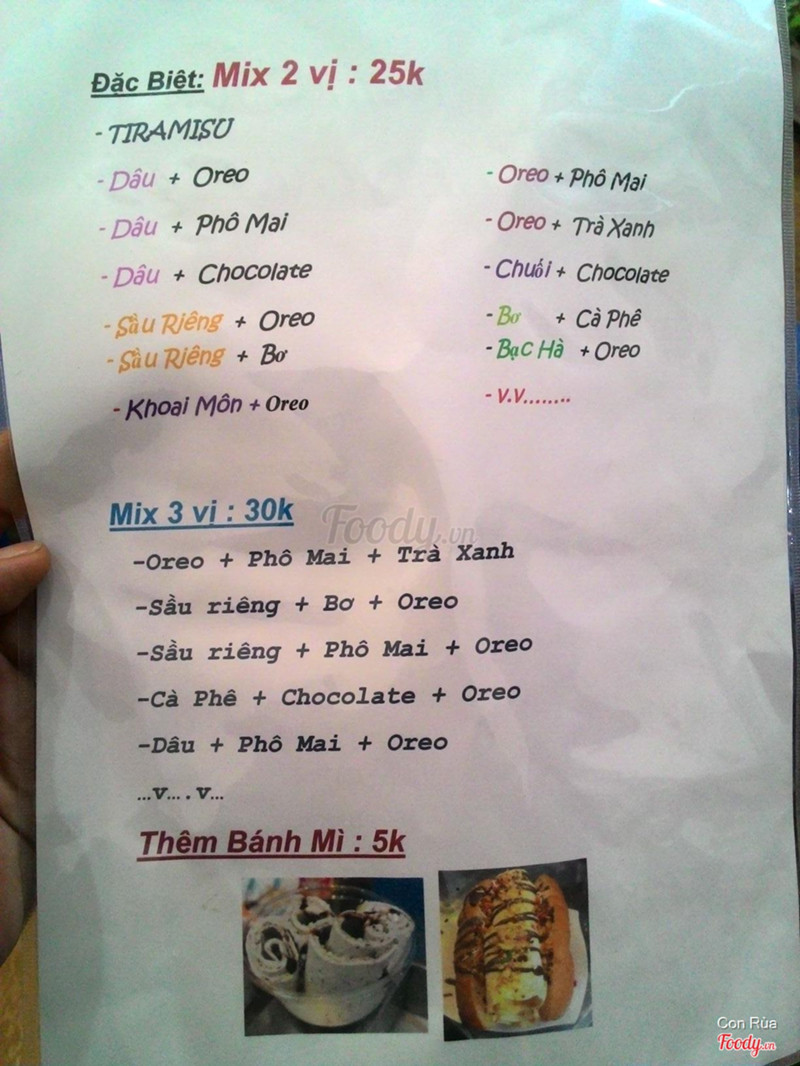 Đặc Biệt: Mix 2 vị : 25k
- TIRAMISU
- Dâu + Oreo
- Dâu + Phô Mai
- Dâu + Chocolate
- Sầu Riêng + Oreo
- Sầu Riêng + Bơ
- Khoai Môn + Oreo
- Oreo + Phô Mai
- Oreo + Trà Xanh
- Chuối + Chocolate
- Bơ + Cà Phê
- Bạc Hà + Oreo
- v.v........
Mix 3 vị : 30k
Foody.vn
-Oreo + Phô Mai + Trà Xanh
-Sầu riêng + Bơ + Oreo
-Sầu riêng + Phô Mai + Oreo
-Cà Phê + Chocolate + Oreo
-Dâu + Phô Mai + Oreo
…v….v…
Thêm Bánh Mì : 5k
Con Rùa
Foody.vn